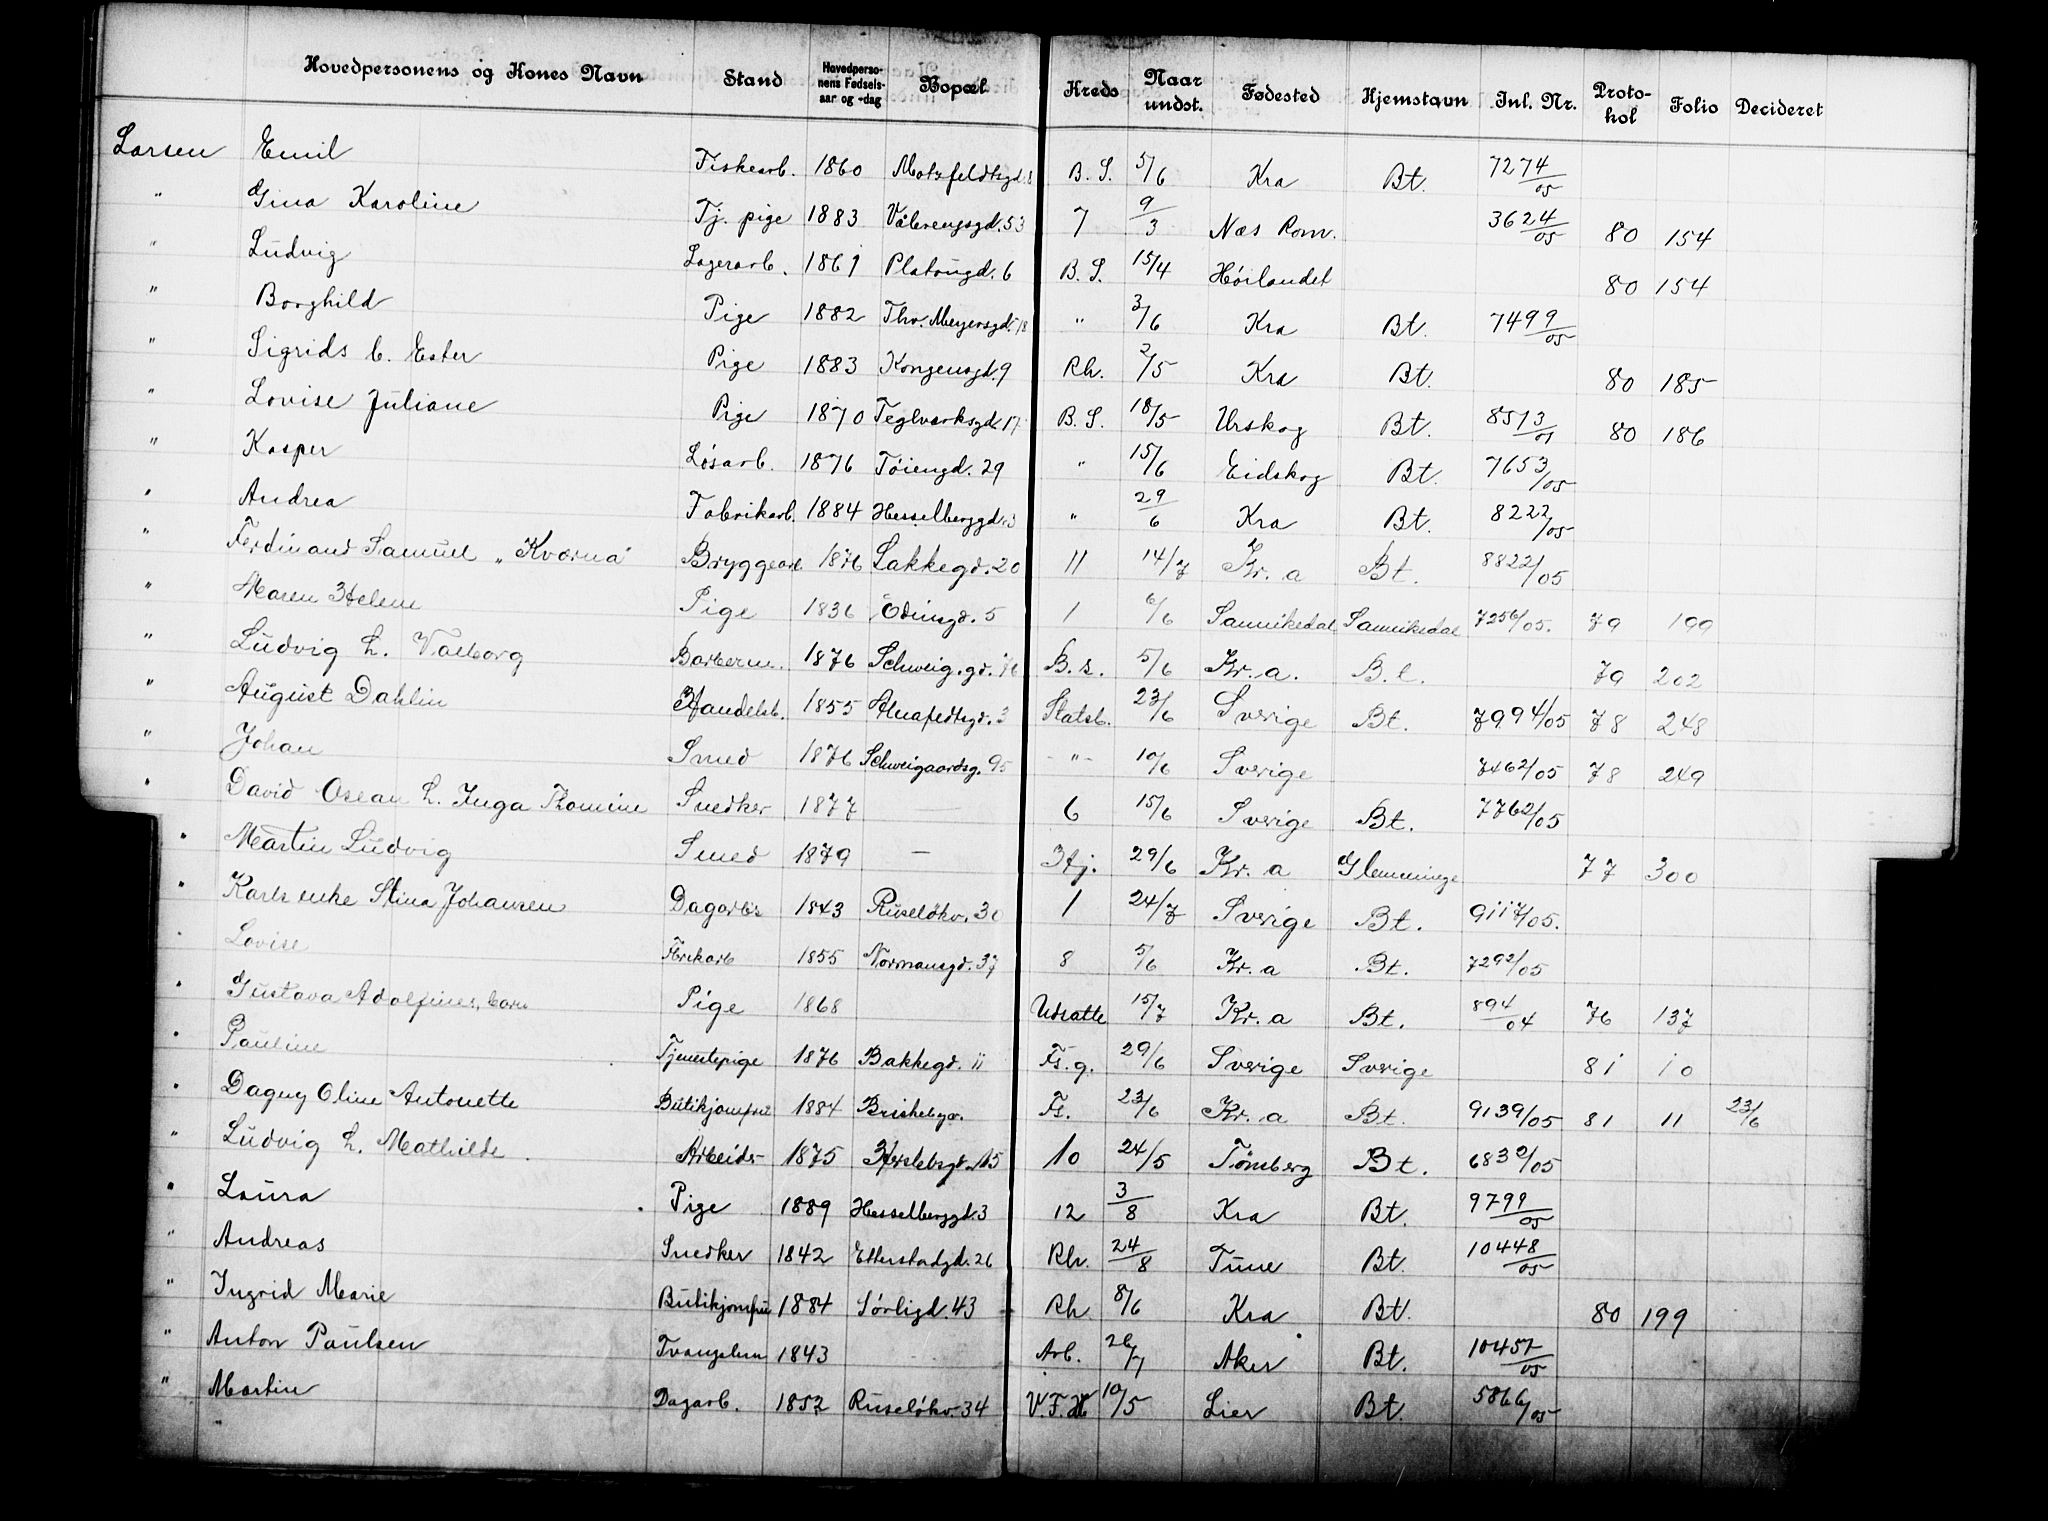 Hovedpersonens og Kones Navn Stand Hovedperso-nens Fødsels-aar og -dag Bopæl Kreds Naar undst. Fødested Hjemstavn Inl. Nr. Proto-kol Folio Decideret
Larsen Emil Fiskearb. 1860 Motzfeldtsgd. 8 B. S. 5/6 Kra Bt. 7274/05
" Gina Karoline Tj. pige 1883 Vålerengsgd. 53 7 9/3 Næs Rom. 3624/05 80 154
" Ludvig Lagerarb. 1861 Platougd. 6 B. S. 15/4 Høilandet 80 154
" Borghild Pige 1882 Thv. Meyersgd. 18 " 3/6 Kra Bt. 7499/05
" Sigrids b. Ester Pige 1883 Kongensgd. 9 Rh. 2/5 Kra Bt. 80 185
" Lovise Juliane Pige 1870 Teglverksgd. 17 B. S. 18/5 Urskog Bt. 8513/01 80 186
" Kasper Løsarb. 1876 Tøiengd. 29 " 15/6 Eidskog Bt. 7653/05
" Andrea Fabrikarb. 1884 Hesselberggd. 3 " 29/6 Kra Bt. 8222/05
" Ferdinand Samuel „Kværna" Bryggearb 1876 Lakkegd. 20 11 14/7 Kr. a Bt. 8822/05
" Maren Helene Pige 1836 Odinsgd. 5 1 6/6 Sannikedal Sannikedal 7256/05. 79 199
" Ludvig h. Valborg Barberm. 1876 Schweig. gd. 76 B. s. 5/6 Kr. a. B. t. 79 202
" August Dahlin Handelsb. 1855 Alnafedtsgd. 3 Statsb. 23/6 Sverige Bt. 7994/05 78 248
" Johan Smed 1876 Schweigaardsg. 95 -"- 10/6 Sverige 7462/05 78 249
" David Osean h. Inga Thomine Snedker 1877 — 6 15/6 Sverige Bt. 7762/05
" Martin Ludvig Smed 1879 — Hj. 29/6 Kr. a Glemminge 77 300
" Karls enke Stina Johansen Dagarb's 1843 Ruseløkv. 30 1 24/7 Sverige Bt. 9117/05.
" Lovise 1855 Normansgd. 37 8 5/6 Kr. a Bt. 7292/05
" Gustava Adolfines, barn Pige 1868 Udsatte 15/7 Kr. a Bt. 894/04 76 137
" Pauline Tjenestepige 1876 Bakkegd. 11 Fs. g. 29/6 Sverige Sverige 81 10
" Dagny Oline Antonette Butikjomfru 1884 Briskebyv. Fs. 23/6 Kr. a Bt. 9139/05 81 11 23/6
" Ludvig h. Mathilde Arbeider 1875 Herslebsgd. 15 10 24/5 Tønsberg Bt. 6830/05
" Laura Pige 1889 Hesselberggd. 3 12 3/8 Kra Bt. 9799/05
" Andreas Snedker 1842 Etterstadgd. 26 Rh. 24/8 Tune Bt. 10448/05
" Ingrid Marie Butikjomfru 1884 Sørligd. 43 Rh. 8/6 Kra Bt. 80 199
" Anton Paulsen Tvangslem 1843 Arb. 26/7 Aker Bt. 10457/05
" Martin Dagarb. 1852 Ruseløkv. 34 V. F. H 10/5 Lier Bt. 5866/05
"